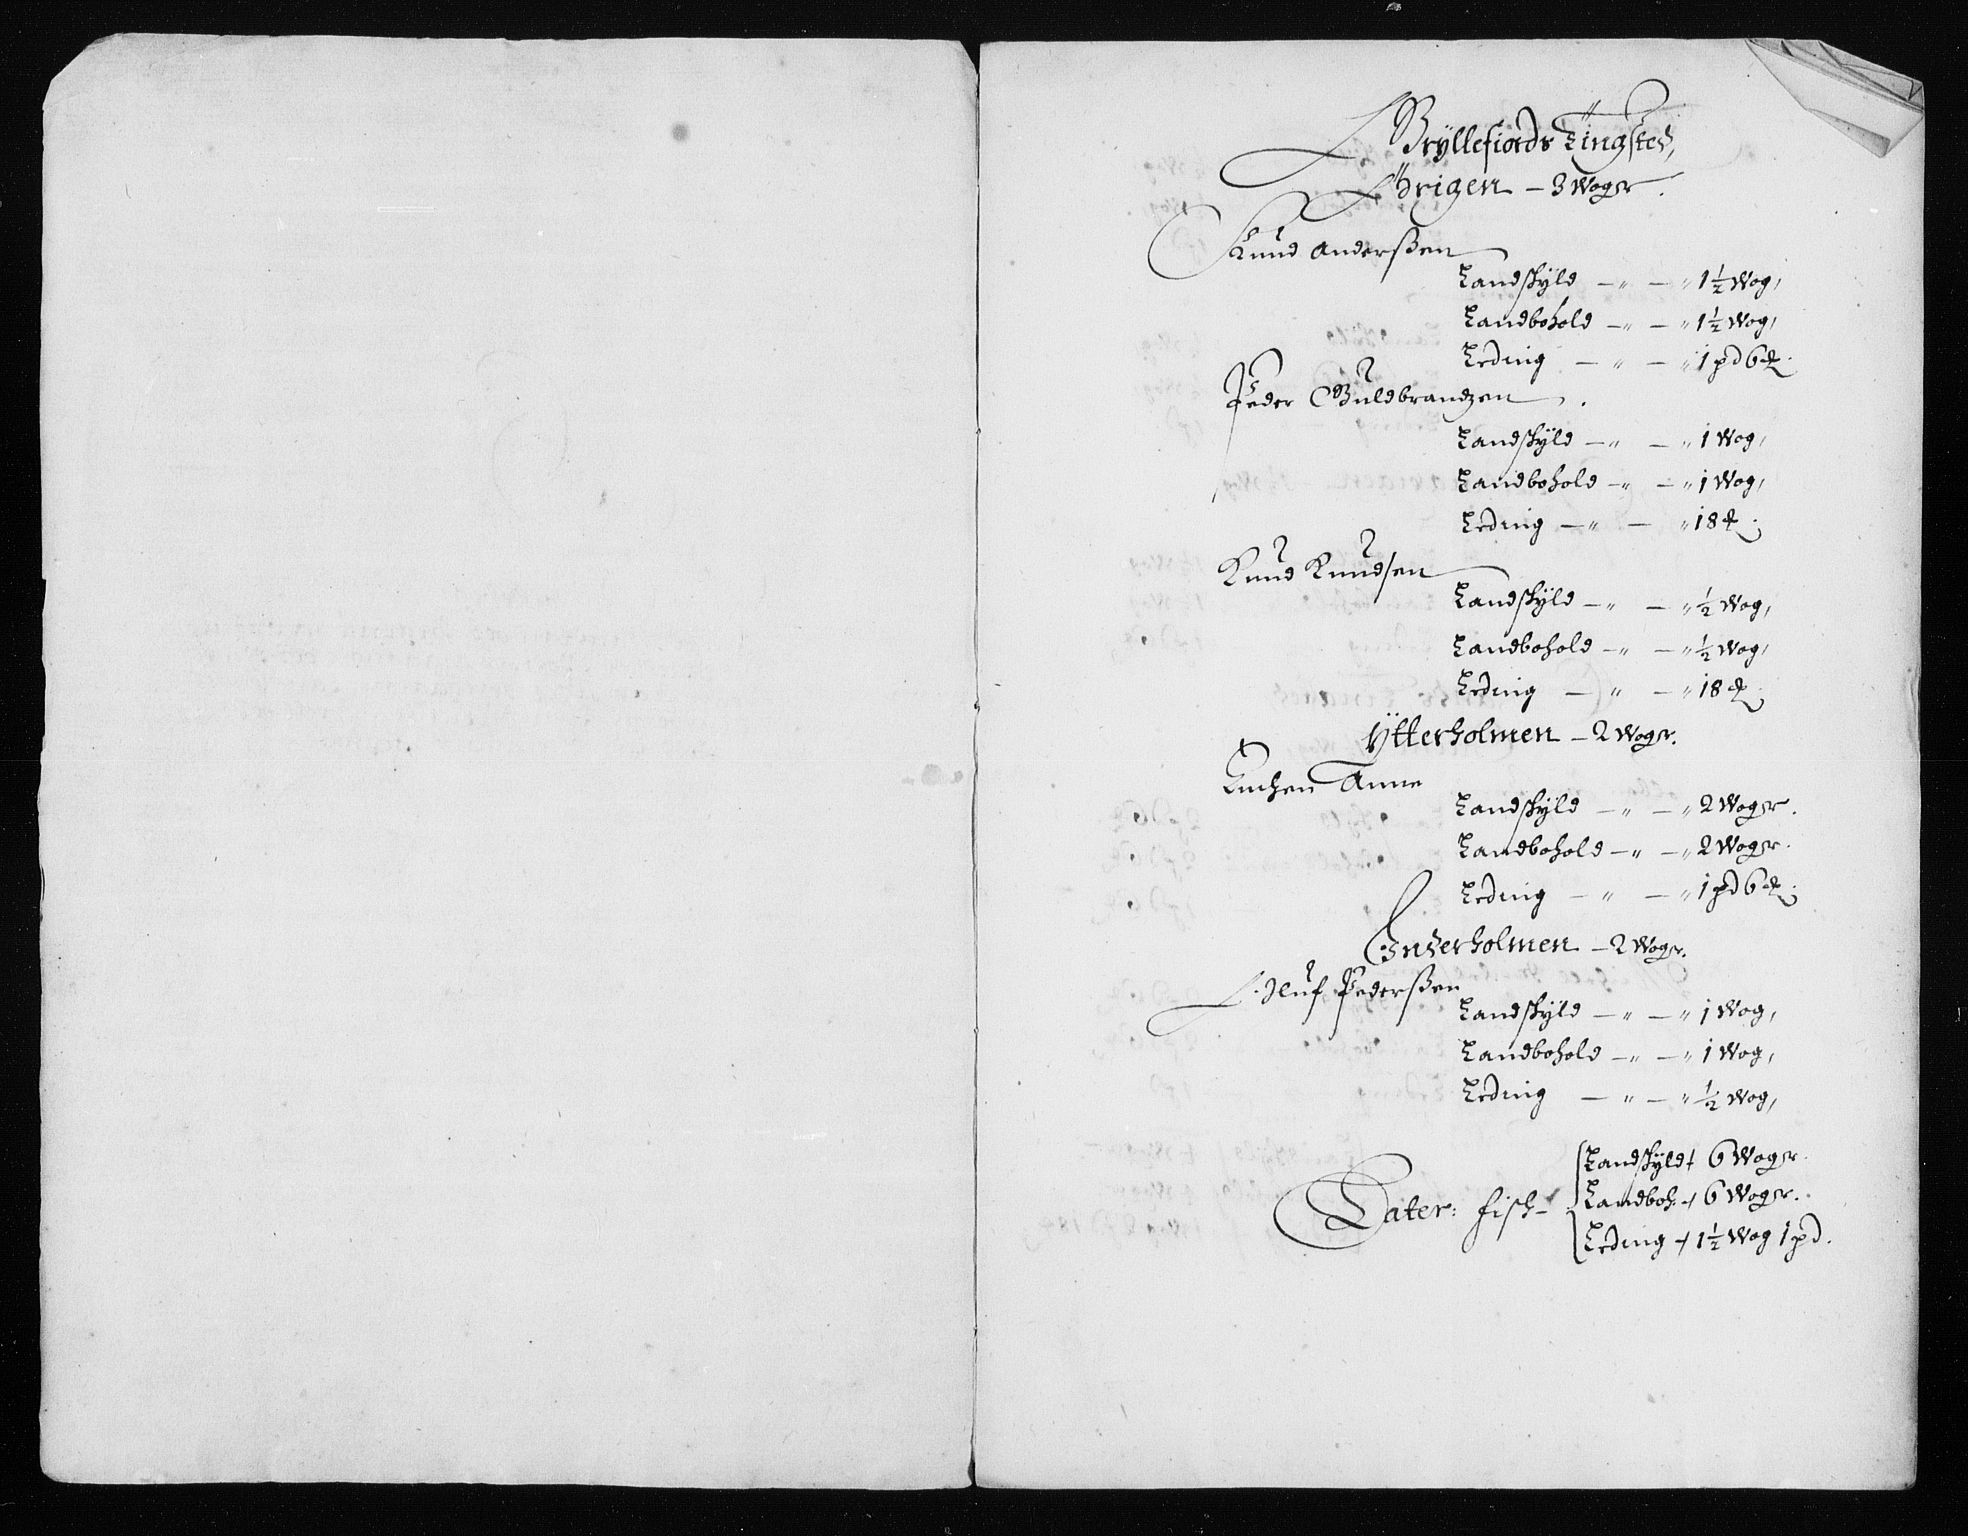 Gryllefiords Tingsted,
Ørigen – 3 Woger.
Knud Anderßen
Landskyld – " – " 1½ Wog,
Landbohold – " – " 1½ Wog,
Leding – " – " 1 pd 6 ℔.
Peder Guldbrandzen.
Landskyld – " – " 1 Wog,
Landbohold – " – " 1 Wog,
Leding – " – " 18 ℔.
Knud Knudsen
Landskyld – " – " ½ Wog,
Landbohold – " – " ½ Wog,
Leding – " – " 18 ℔.
Ytterholmen – 2 Woger.
Enchen Anne
Landskyld – " – " 2 Woger.
Landbohold – " – " 2 Woger.
Leding – " – " 1 pd 6 ℔.
Inderholmen – 2 Woger.
Oluf Pederßen
Landskyld – " – " 1 Wog,
Landbohold – " – " 1 Wog,
Leding – " – " ½ Wog,
Landskyld + 6 Woger.
Later: fisk – Landboh. + 6 Woger.
Leding + 1½ Wog 1 pd.